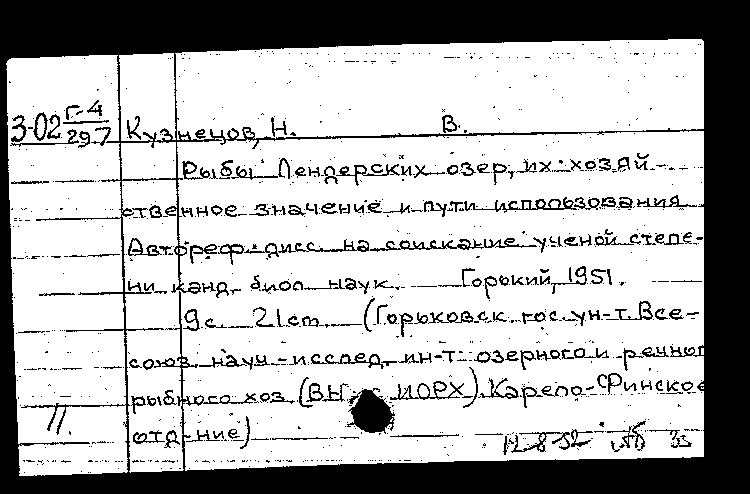 З-02 Г-4
29.7 Кузнецов, Н. В.
Рыбы Лендерских озер, их хозяй-
ственное значение и пути использования
Автореф. дисс. на соискание ученой степе-
ни канд. биол. наук. Горький, 1951.
9с. 21ст. (Горьковск. гос. ун-т. Все-
союз. науч-исслед. ин-т. озерного и речног
рыбного хоз. (ВН ИОРХ). Карело-Финское
отд-ние)
11.